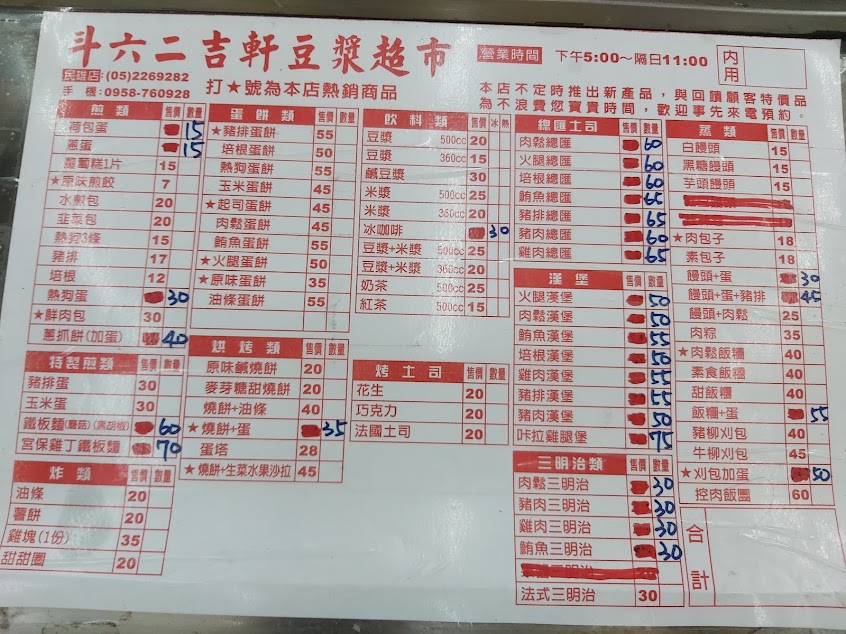 斗六二吉軒豆漿超市
營業時間 下午5:00~隔日11:00
內用
民雄店:(05)2269282
手 機:0958-760928
打★號為本店熱銷商品
本店不定時推出新產品,與回饋顧客特價品
為不浪費您寶貴時間,歡迎事先來電預約。
煎類 售價 數量
荷包蛋 15
蔥蛋 15
蘿蔔糕1片 15
★原味煎餃 7
水煎包 20
韭菜包 20
熱狗3條 15
豬排 17
培根 12
熱狗蛋 30
★鮮肉包 30
蔥抓餅(加蛋) 40
特製煎類 售價 數量
豬排蛋 30
玉米蛋 30
鐵板麵(蘑菇)(黑胡椒) 60
宮保雞丁鐵板麵 70
炸類 售價 數量
油條 20
薯餅 20
雞塊(1份) 35
甜甜圈 20
蛋餅類 售價 數量
★豬排蛋餅 55
培根蛋餅 50
熱狗蛋餅 55
玉米蛋餅 45
★起司蛋餅 45
肉鬆蛋餅 45
鮪魚蛋餅 55
★火腿蛋餅 50
★原味蛋餅 35
油條蛋餅 55
烘烤類 售價 數量
原味鹹燒餅 20
麥芽糖甜燒餅 20
燒餅+油條 40
★燒餅+蛋 35
蛋塔 28
★燒餅+生菜水果沙拉 45
飲料類 售價 冰 熱
豆漿 500cc 20
豆漿 360cc 15
鹹豆漿 30
米漿 500cc 25
米漿 360cc 20
冰咖啡 30
豆漿+米漿 500cc 25
豆漿+米漿 360cc 20
奶茶 500cc 25
紅茶 500cc 15
烤土司 售價 數量
花生 20
巧克力 20
法國土司 20
總匯土司 售價 數量
肉鬆總匯 60
火腿總匯 60
培根總匯 60
鮪魚總匯 65
豬排總匯 65
豬肉總匯 60
雞肉總匯 65
漢堡 售價 數量
火腿漢堡 50
肉鬆漢堡 50
鮪魚漢堡 55
培根漢堡 50
雞肉漢堡 55
豬排漢堡 55
豬肉漢堡 50
咔拉雞腿堡 75
三明治類 售價 數量
肉鬆三明治 30
豬肉三明治 30
雞肉三明治 30
鮪魚三明治 30
法式三明治 30
蒸類 售價 數量
白饅頭 15
黑糖饅頭 15
芋頭饅頭 15
★肉包子 18
素包子 18
饅頭+蛋 30
饅頭+蛋+豬排 45
饅頭+肉鬆 25
肉粽 35
★肉鬆飯糰 40
素食飯糰 40
甜飯糰 40
飯糰+蛋 55
豬柳刈包 40
牛柳刈包 45
★刈包加蛋 50
控肉飯團 60
合計